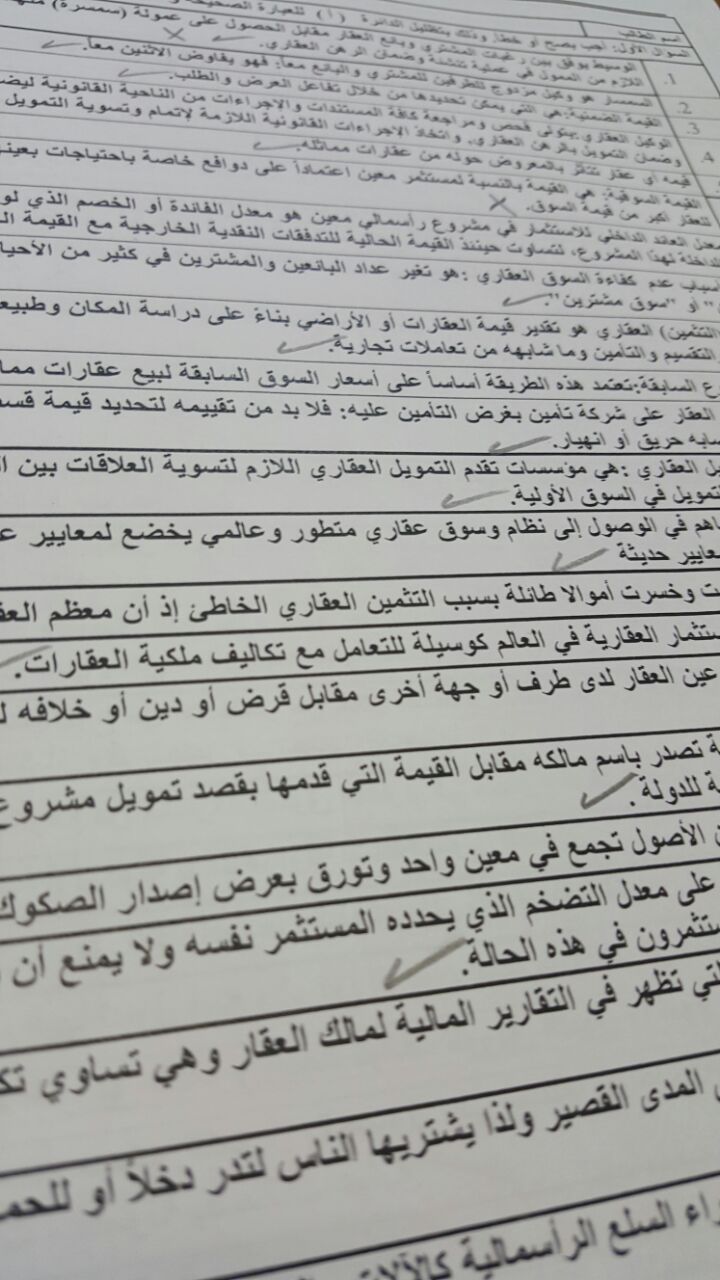 اسم الطالب
السؤال الأول: أجب بصح أو خطأ وذلك بتظليل الدائرة (أ) للعبارة الصحيحة
1. الوسيط يوفق بين رغبات المشتري وبائع العقار مقابل الحصول على عمولة (سمسرة)
اللازم من الممول في عملية وضمان الرهن العقاري.
2. السمسار هو وكيل مزدوج للطرفين للمشتري والبائع معاً: فهو يفاوض الاثنين معاً.
3. القيمة الضمنية: هي التي يمكن تحديدها من خلال تفاعل العرض والطلب.
4. الوكيل العقاري: يتولى فحص ومراجعة كافة المستندات والإجراءات من الناحية القانونية
وضمان التمويل بالرهن العقاري، واتخاذ الإجراءات القانونية اللازمة لإتمام وتسوية التمويل
قيمة أي عقار تتأثر بالمعروض حوله من عقارات مماثلة.
القيمة السوقية: هي القيمة بالنسبة لمستثمر معين اعتماداً على دوافع خاصة باحتياجات
للعقار أكبر من قيمة السوق.
معدل العائد الداخلي للاستثمار في مشروع رأسمالي معين هو معدل الفائدة أو الخصم الذي لو
الداخلة لهذا المشروع، لتساوت حينئذ القيمة الحالية للتدفقات النقدية الخارجية مع القيمة
أسباب عدم كفاءة السوق العقاري: هو تغير عداد البائعين والمشترين في كثير من
" أو "سوق مشترين".
(التثمين) العقاري هو تقدير قيمة العقارات أو الأراضي بناءً على دراسة المكان
والتقسيم والتأمين وما شابهه من تعاملات تجارية.
السابقة: تعتمد هذه الطريقة أساساً على أسعار السوق السابقة لبيع عقارات
العقار على شركة تأمين بغرض التأمين عليه: فلا بد من تقييمه لتحديد قيمة
حريق أو انهيار.
العقاري: هي مؤسسات تقدم التمويل العقاري اللازم لتسوية العلاقات بين
التمويل في السوق الأولية.
في الوصول إلى نظام وسوق عقاري متطور وعالمي يخضع لمعايير
حديثة
وخسرت أموالا طائلة بسبب التثمين العقاري الخاطئ إذ أن معظم
العقارية في العالم كوسيلة للتعامل مع تكاليف ملكية العقارات.
عين العقار لدى طرف أو جهة أخرى مقابل قرض أو دين أو خلافه
تصدر باسم مالكه مقابل القيمة التي قدمها بقصد تمويل مشروع
للدولة.
الأصول تجمع في معين واحد وتورق بعرض إصدار الصكوك
على معدل التضخم الذي يحدده المستثمر نفسه ولا يمنع أن
في هذه الحالة.
تظهر في التقارير المالية لمالك العقار وهي تساوي
المدى القصير ولذا يشتريها الناس لتدر دخلاً أو
السلع الرأسمالية